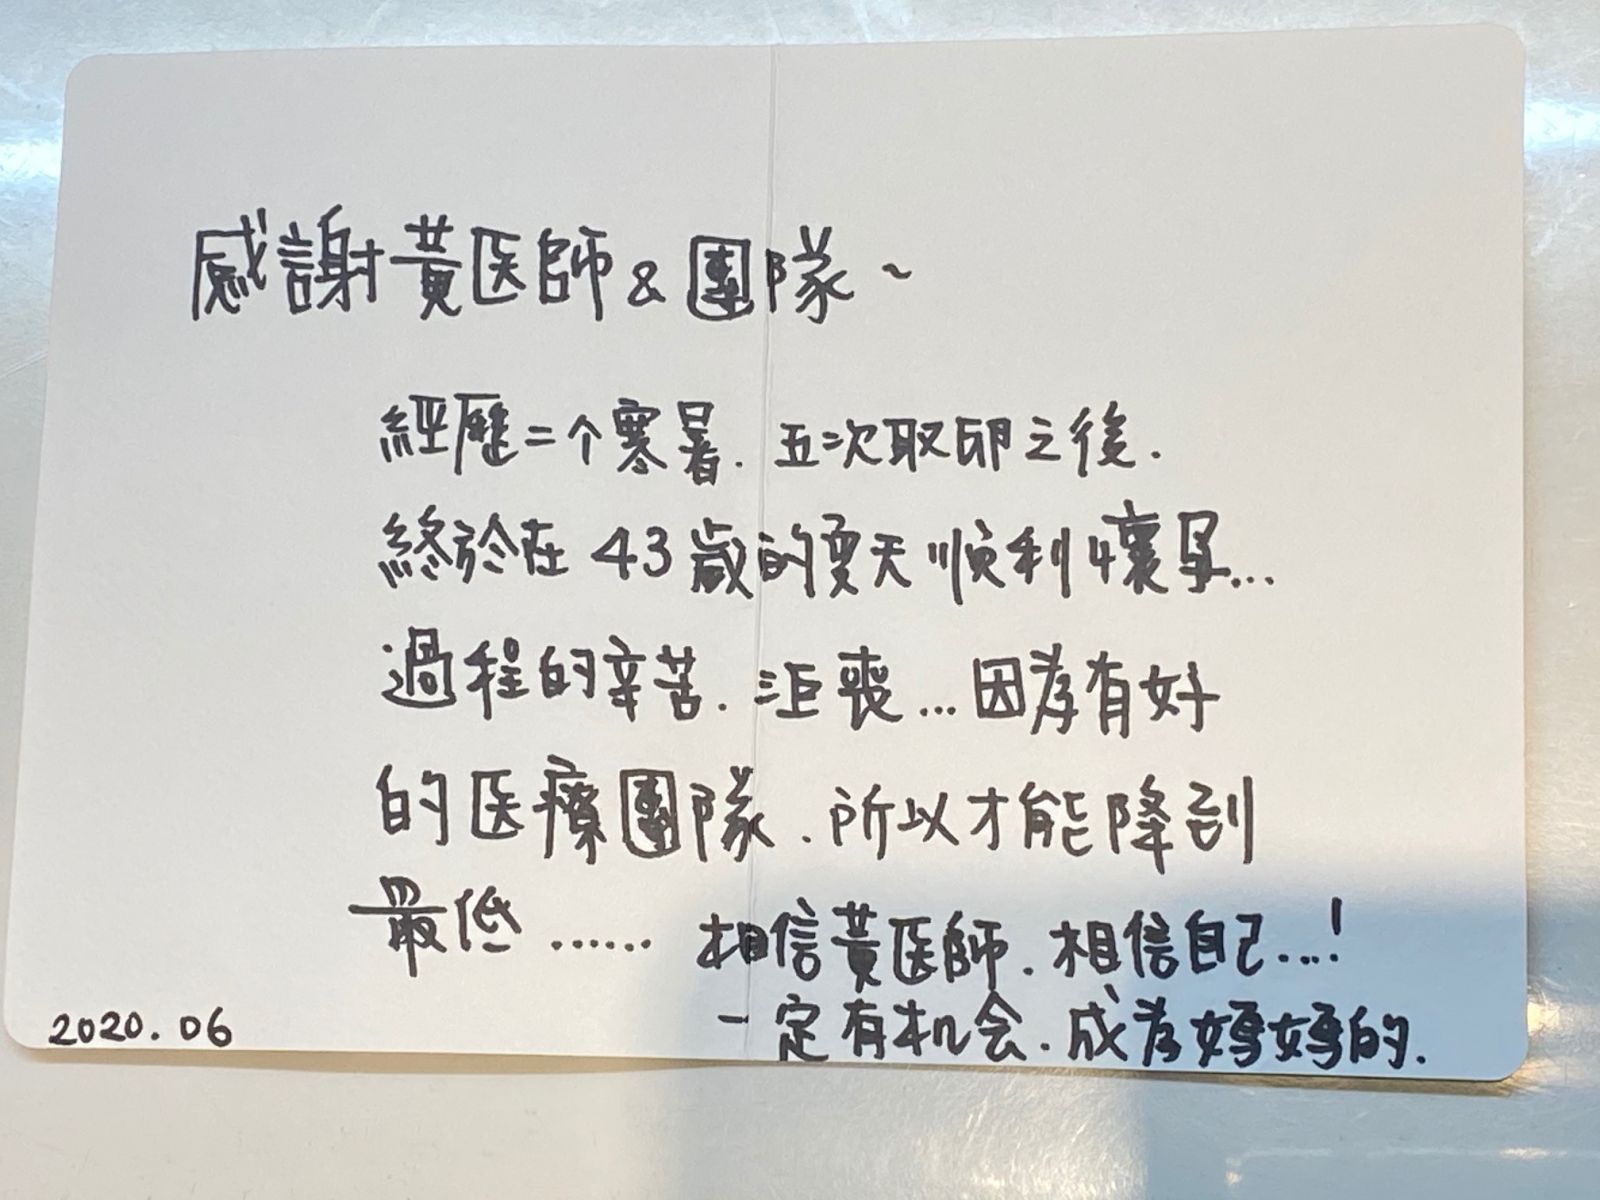 感謝黃医師 & 團隊~
經歷二个寒暑. 五次取卵之後.
終於在 43 歲的夏天順利懷孕...
過程的辛苦. 沮喪... 因為有好
的医療團隊. 所以才能降到
最低......
相信黃医師. 相信自己...!
一定有机会. 成為媽媽的.
2020.06